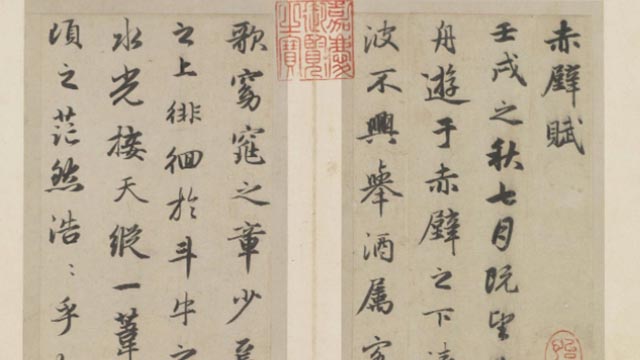 赤壁賦
壬戌之秋七月既望
舟遊于赤壁之下
波不興舉酒属客
歌窈窕之章少焉
之上徘徊於斗牛之
水光接天縱一葦
頃之茫然浩〻乎
嘉慶御覽之寶